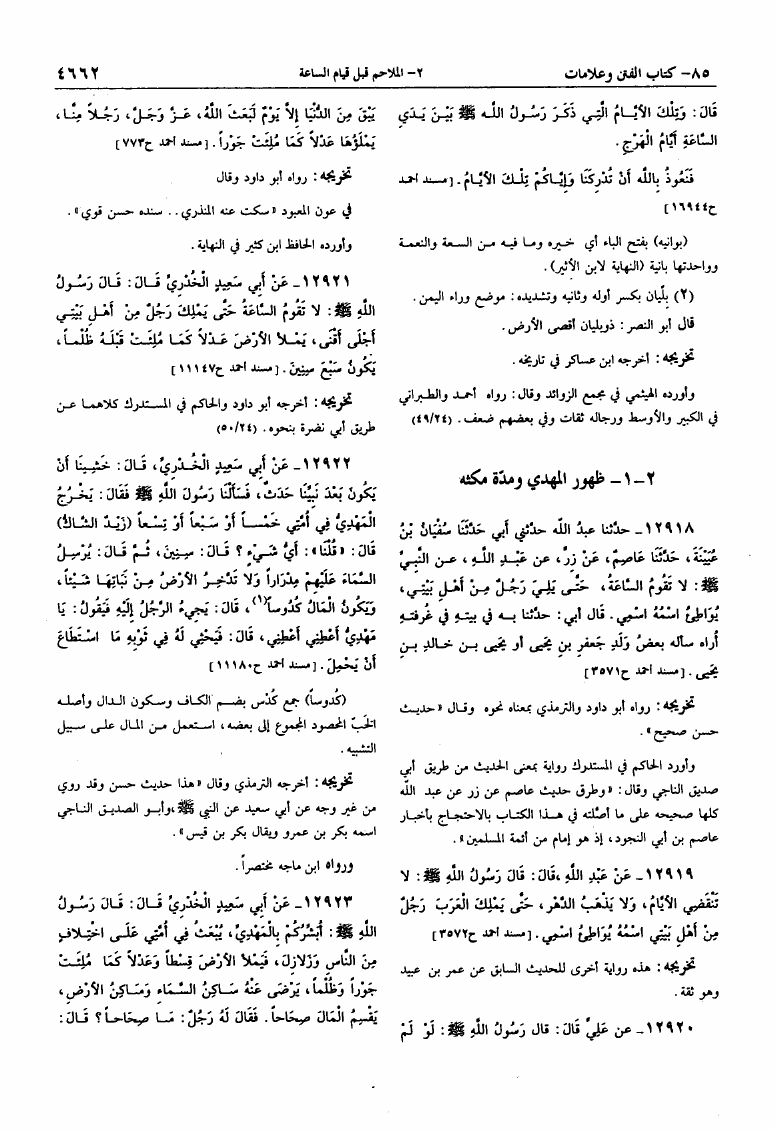 ٨٥- كتاب الفتن وعلامات
٢- الملاحم قبل قيام الساعة
٤٦٦٢
قَالَ: وَتِلْكَ الأَيَّامُ الَّتِي ذَكَرَ رَسُولُ اللَّهِ ﷺ بَيْنَ يَدَيِ
السَّاعَةِ أَيَّامُ الْهَرْجِ.
فَنَعُوذُ بِاللَّهِ أَنْ تُدْرِكَنَا وَإِيَّاكُمْ تِلْكَ الأَيَّامُ. [مسند احمد
ح١٦٩٤٤]
(بوانيه) بفتح الباء أي خيره وما فيه من السعة والنعمة
وواحدتها بانية (النهاية لابن الأثير).
(٢) بِلْيان بكسر أوله وثانيه وتشديده: موضع وراء اليمن.
قال أبو النصر: ذوبليان أقصى الأرض.
تخريجه: أخرجه ابن عساكر في تاريخه.
وأورده الهيثمي في مجمع الزوائد وقال: رواه أحمد والطبراني
في الكبير والأوسط ورجاله ثقات وفي بعضهم ضعف. (٤٩/٢٤)
٢-١- ظهور المهدي ومدّة مكثه
١٢٩١٨- حدَّثنا عبدُ الله حدثني أبي حَدَّثَنَا سُفْيَانُ بْنُ
عُيَيْنَةَ، حَدَّثَنَا عَاصِمٌ، عَنْ زِرٍّ، عن عَبْدِ اللَّهِ، عـن النَّبِيِّ
ﷺ: لا تَقُومُ السَّاعَةُ، حَتَّى يَلِيَ رَجُلٌ مِنْ أَهْلِ بَيْتِي،
يُوَاطِئُ اسْمُهُ اسْمِي. قال أبي: حدَّثنا بـه في بيتِهِ في غُرفتِهِ
أراه سألَه بعضُ وَلَدِ جَعفرِ بنِ يَحيى أو يَحيى بـن خـالدِ بـنِ
يَحيى. [مسند احمد ح٣٥٧١]
تخريجه: رواه أبو داود والترمذي بمعناه نحوه وقال «حديث
حسن صحيح».
وأورد الحاكم في المستدرك رواية بمعنى الحديث من طريق أبي
صديق الناجي وقال: «وطرق حديث عاصم عن زر عن عبد الله
كلها صحيحه على ما أصَّلته في هـذا الكتاب بالاحتجاج بأخبار
عاصم بن أبي النجود، إذ هو إمام من أئمة المسلمين».
١٢٩١٩- عَنْ عَبْدِ اللَّهِ، قَالَ: قَالَ رَسُولُ اللَّهِ ﷺ: لا
تَنْقَضِي الأَيَّامُ، وَلا يَذْهَبُ الدَّهْرُ، حَتَّى يَمْلِكَ الْعَرَبَ رَجُلٌ
مِنْ أَهْلِ بَيْتِي اسْمُهُ يُوَاطِئُ اسْمِي. [مسند احمد ح٣٥٧٢]
تخريجه: هذه رواية أخرى للحديث السابق عن عمر بن عبيد
وهو ثقة.
١٢٩٢٠- عن عَلِيٍّ قَالَ: قال رَسُولُ اللَّهِ ﷺ: لَوْ لَمْ
يَبْقَ مِنَ الدُّنْيَا إِلاَّ يَوْمٌ لَبَعَثَ اللَّهُ، عَزَّ وَجَلَّ، رَجُلاً مِنَّا،
يَمْلَؤُهَا عَدْلاً كَمَا مُلِئَتْ جَوْراً. [مسند احمد ح٧٧٣]
تخريجه: رواه أبو داود وقال
في عون المعبود «سكت عنه المنذري.. سنده حسن قوي».
وأورده الحافظ ابن كثير في النهاية.
١٢٩٢١- عَنْ أَبِي سَعِيدٍ الْخُدْرِيِّ قَالَ: قَالَ رَسُولُ
اللَّهِ ﷺ: لا تَقُومُ السَّاعَةُ حَتَّى يَمْلِكَ رَجُلٌ مِنْ أَهْلِ بَيْتِي
أَجْلَى أَقْنَى، يَمْلأُ الأَرْضَ عَدْلاً كَمَا مُلِئَتْ قَبْلَهُ ظُلْماً،
يَكُونُ سَبْعَ سِنِينَ. [مسند احمد ح١١١٤٧]
تخريجه: أخرجه أبو داود والحاكم في المستدرك كلاهما عن
طريق أبي نضرة بنحوه. (٥٠/٢٤)
١٢٩٢٢- عَنْ أَبِي سَعِيدٍ الْخُدْرِيِّ، قَالَ: خَشِينَا أَنْ
يَكُونَ بَعْدَ نَبِيِّنَا حَدَثٌ، فَسَأَلْنَا رَسُولَ اللَّهِ ﷺ فَقَالَ: يَخْرُجُ
الْمَهْدِيُّ فِي أُمَّتِي خَمْسـاً أَوْ سَبْعاً أَوْ تِسْعاً (زَيْدٌ الشَّاكُّ)
قَالَ: «قُلْنَا»: أَيُّ شَيْءٍ؟ قَالَ: سِنِينَ، ثُمَّ قَالَ: يُرْسِلُ
السَّمَاءَ عَلَيْهِمْ مِدْرَاراً وَلا تَدَّخِرُ الأَرْضُ مِنْ نَبَاتِهَا شَيْئاً،
وَيَكُونُ الْمَالُ كُدُوساً(١)، قَالَ: يَجِيءُ الرَّجُلُ إِلَيْهِ فَيَقُولُ: يَا
مَهْدِيُّ أَعْطِنِي أَعْطِنِي، قَالَ: فَيَحْثِي لَهُ فِي ثَوْبِهِ مَا اسْتَطَاعَ
أَنْ يَحْمِلَ. [مسند احمد ح١١١٨٠]
(كُدوساً) جمع كُدْس بضـم الكاف وسكون الدال وأصله
الحَبّ المحصود المجموع إلى بعضه، استعمل من المال على سبيل
التشبيه.
تخريجه: أخرجه الترمذي وقال «هذا حديث حسن وقد روي
من غير وجه عن أبي سعيد عن النبي ﷺ، وأبو الصديق الناجي
اسمه بكر بن عمرو ويقال بكر بن قيس».
ورواه ابن ماجه مختصراً.
١٢٩٢٣- عَنْ أَبِي سَعِيدٍ الْخُدْرِيِّ قَالَ: قَالَ رَسُولُ
اللَّهِ ﷺ: أُبَشِّرُكُمْ بِالْمَهْدِيِّ، يُبْعَثُ فِي أُمَّتِي عَلَى اخْتِلافٍ
مِنَ النَّاسِ وَزَلازِلَ، فَيَمْلأُ الأَرْضَ قِسْطاً وَعَدْلاً كَمَا مُلِئَتْ
جَوْراً وَظُلْماً، يَرْضَى عَنْهُ سَاكِنُ السَّمَاءِ وَسَاكِنُ الأَرْضِ،
يَقْسِمُ الْمَالَ صِحَاحاً. فَقَالَ لَهُ رَجُلٌ: مَـا صِحَاحـاً؟ قَالَ: